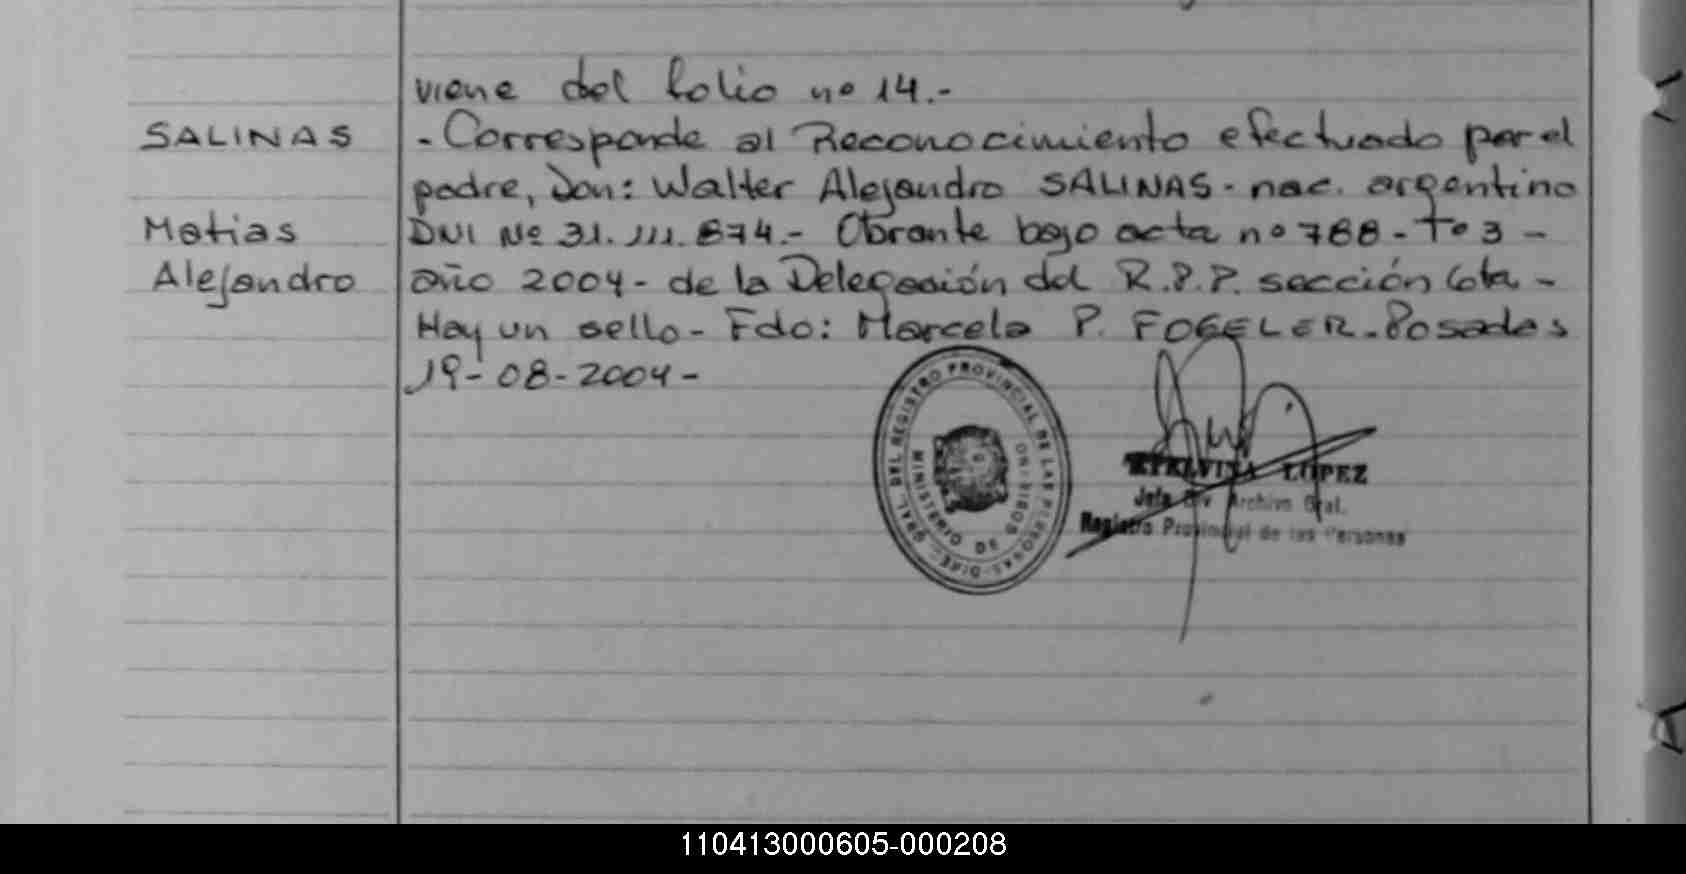 viene del folio nº 14.-
SALINAS
- Corresponde al Reconocimiento efectuado por el
padre, Don: Walter Alejandro SALINAS - nac. argentino
Matias
DNI Nº 31.111.874.- Obrante bajo acta nº 788 - Tº 3 -
Alejandro
año 2004 - de la Delegación del R.P.P. sección 6ta -
Hay un sello - Fdo: Marcela P. FOGELER - Posadas
19-08-2004 -
DIREC. GRAL. DEL REGISTRO PROVINCIAL DE LAS PERSONAS
MINISTERIO DE GOBIERNO
LOPEZ
Jefa Div Archivo Gral.
Registro Provincial de las Personas
110413000605-000208